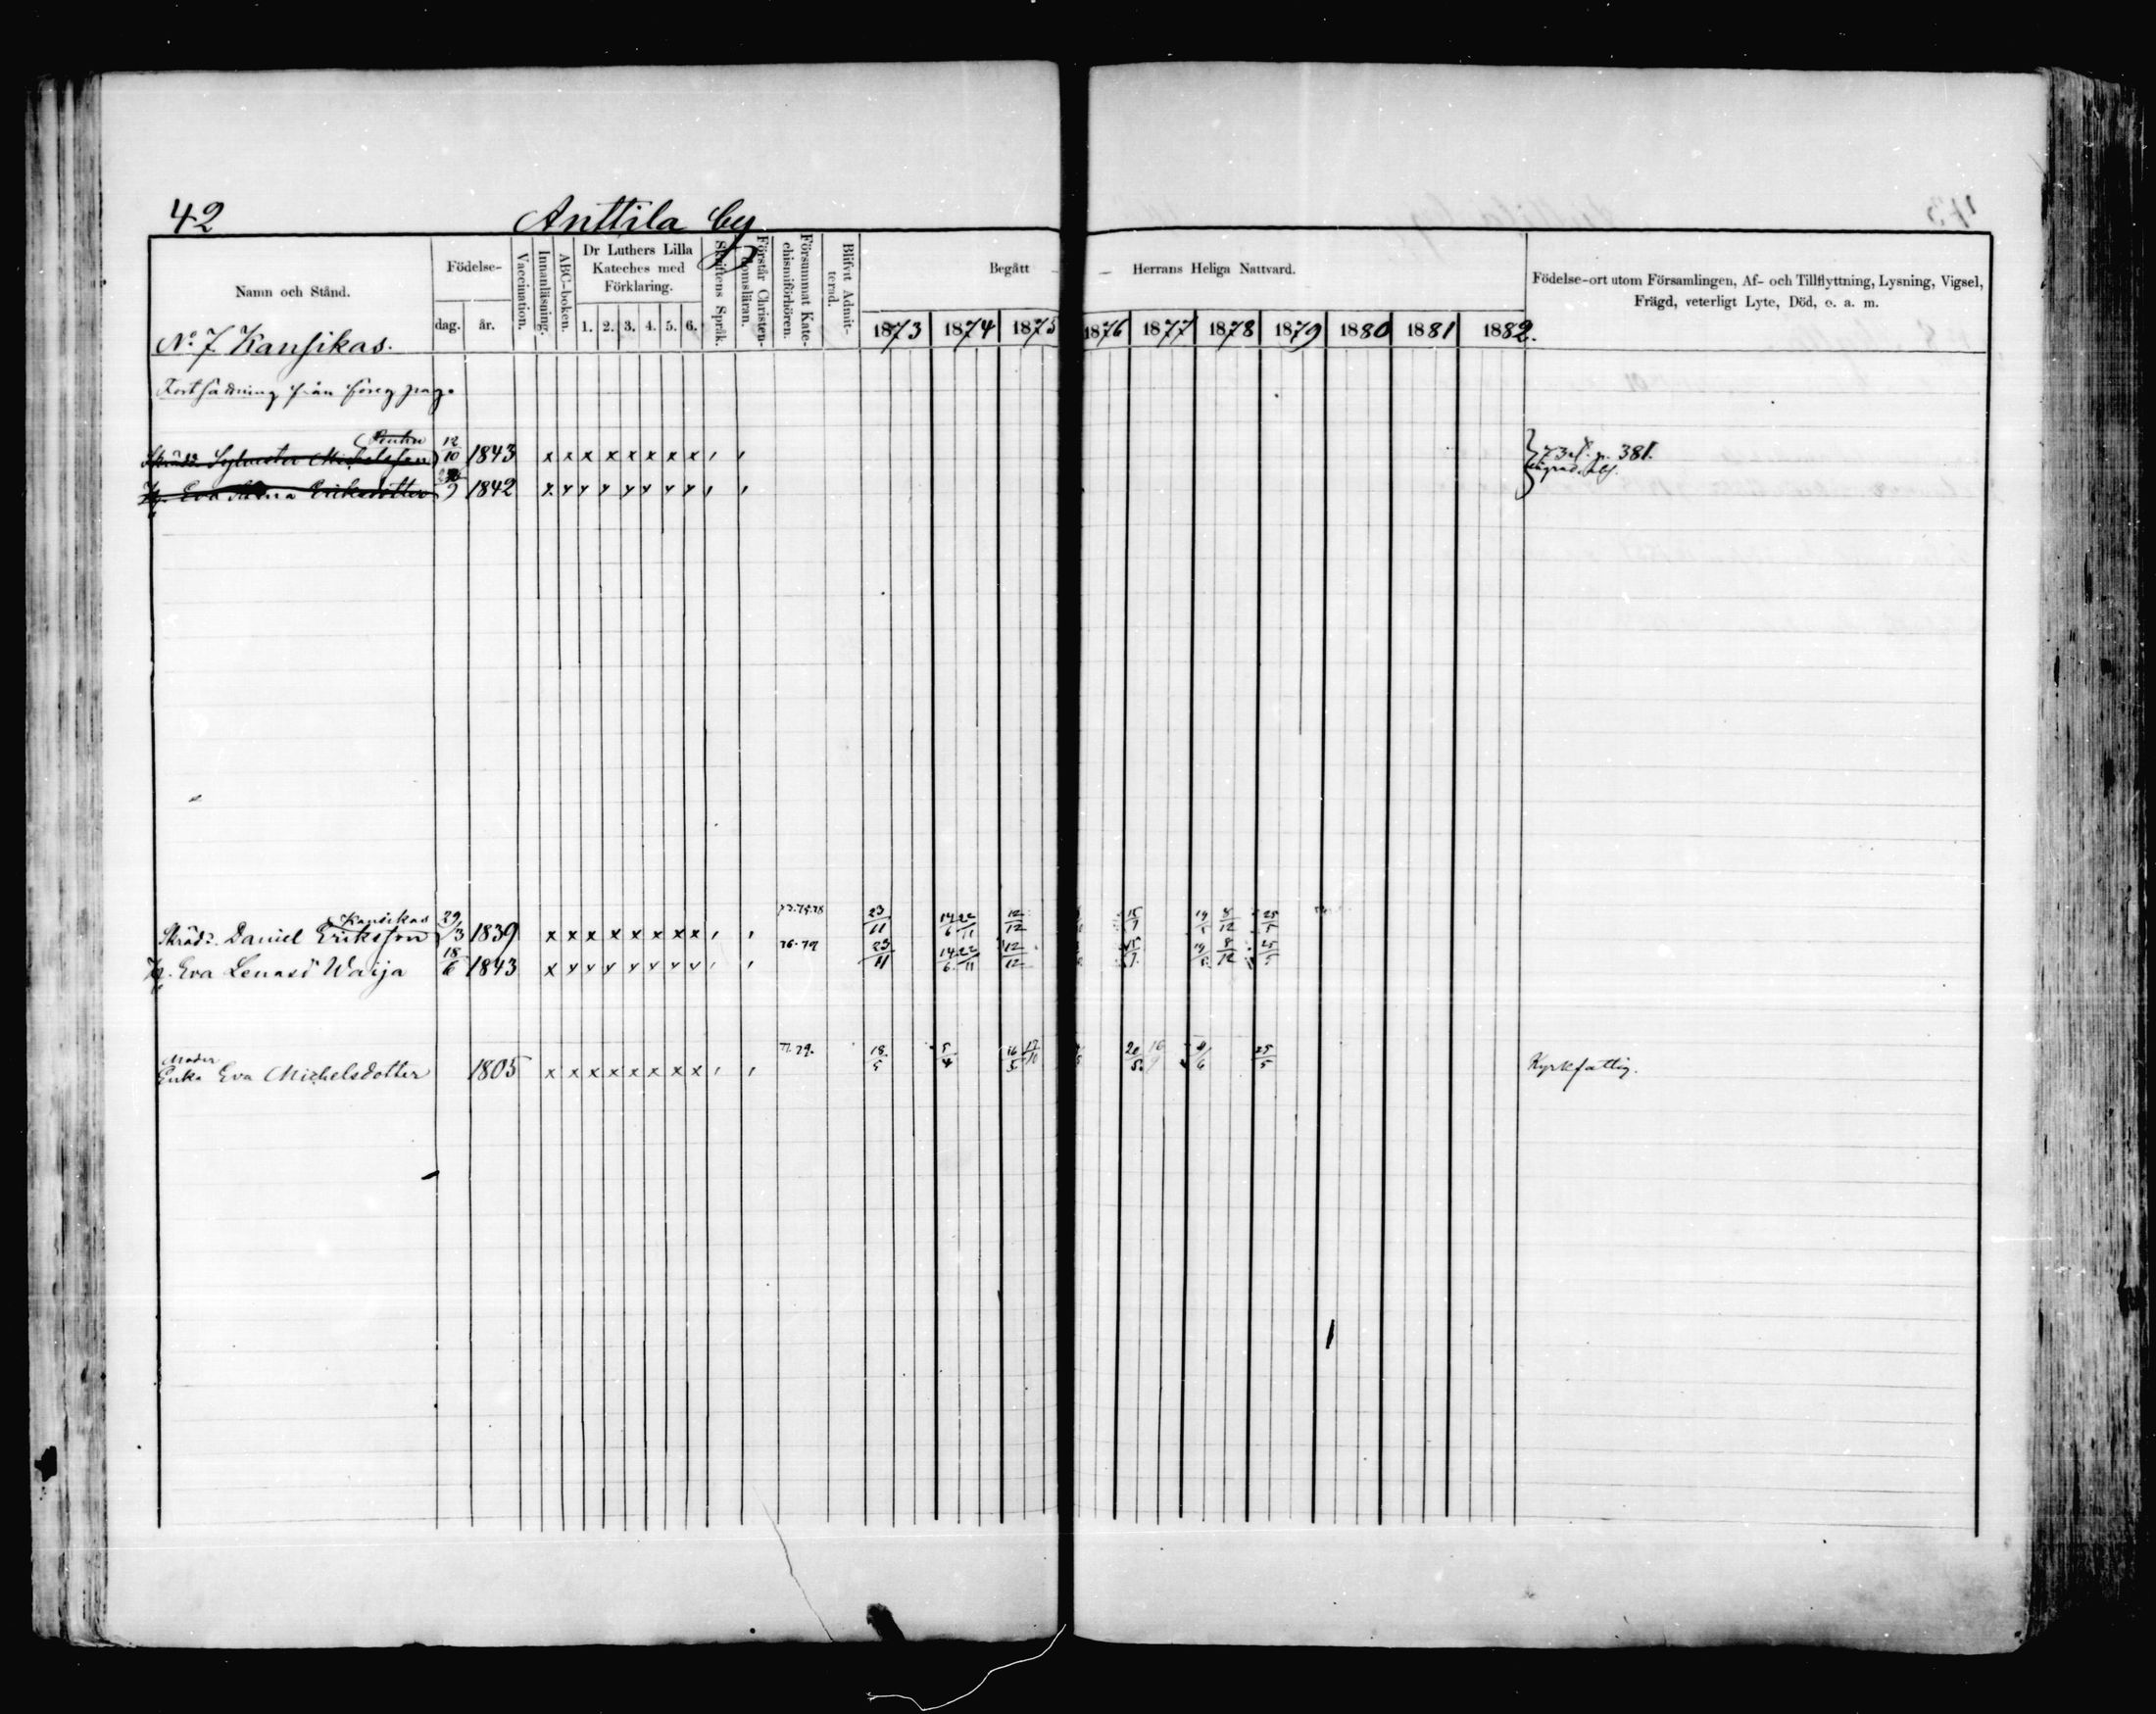 42 Anttila by
Namn och Stånd.
Födelse-
dag. år.
Vaccination.
Innanläsning.
ABC-boken.
Dr Luthers Lilla
Kateches med
Förklaring.
1. 2. 3. 4. 5. 6.
Skriftens Språk.
Förstår Christen-
domsläran.
Försummat Kate-
chismiförhören.
Blifvit Admit-
terad.
Begått — — Herrans Heliga Nattvard.
1873 1874 1875 1876 1877 1878 1879 1880 1881 1882.
Födelse-ort utom Församlingen, Af- och Tillflyttning, Lysning, Vigsel,
Frägd, veterligt Lyte, Död, o. a. m.
No 7 Kansikas.
Fortsättning från föreg pag.
Skräd. Sylvester Michelsson 12/10 1843 x x x x x x x x , , 73 p. 381.
H. Eva Eriksdotter 1842 x v v v v v v v , ,
Kansikas
Skräd. Daniel Eriksson 29/3 1839 x x x x x x x x , , 23/11 14/6 22/11 12/12 15/7 19/5 8/12 25/5
H. Eva Lenasd Waija 18/6 1843 x v v v v v v v , , 76.79 23/11 14/6 22/11 12/12 15/7 19/5 8/12 25/5
Moder
Enka Eva Michelsdotter 1805 x x x x x x x x , , 77.79. 18/5 5/4 16/5 17/10 20/5 16/9 25/5 Kyrkfattig.